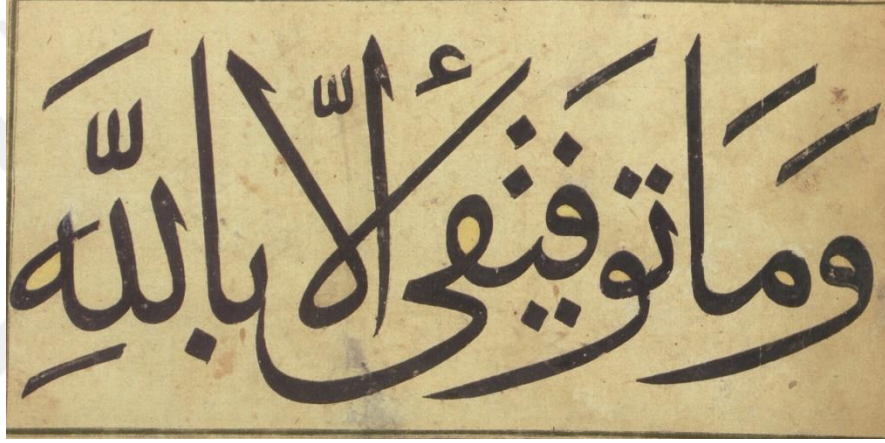 وَمَا تَوفيقى أِلاّ بِاللّهِ